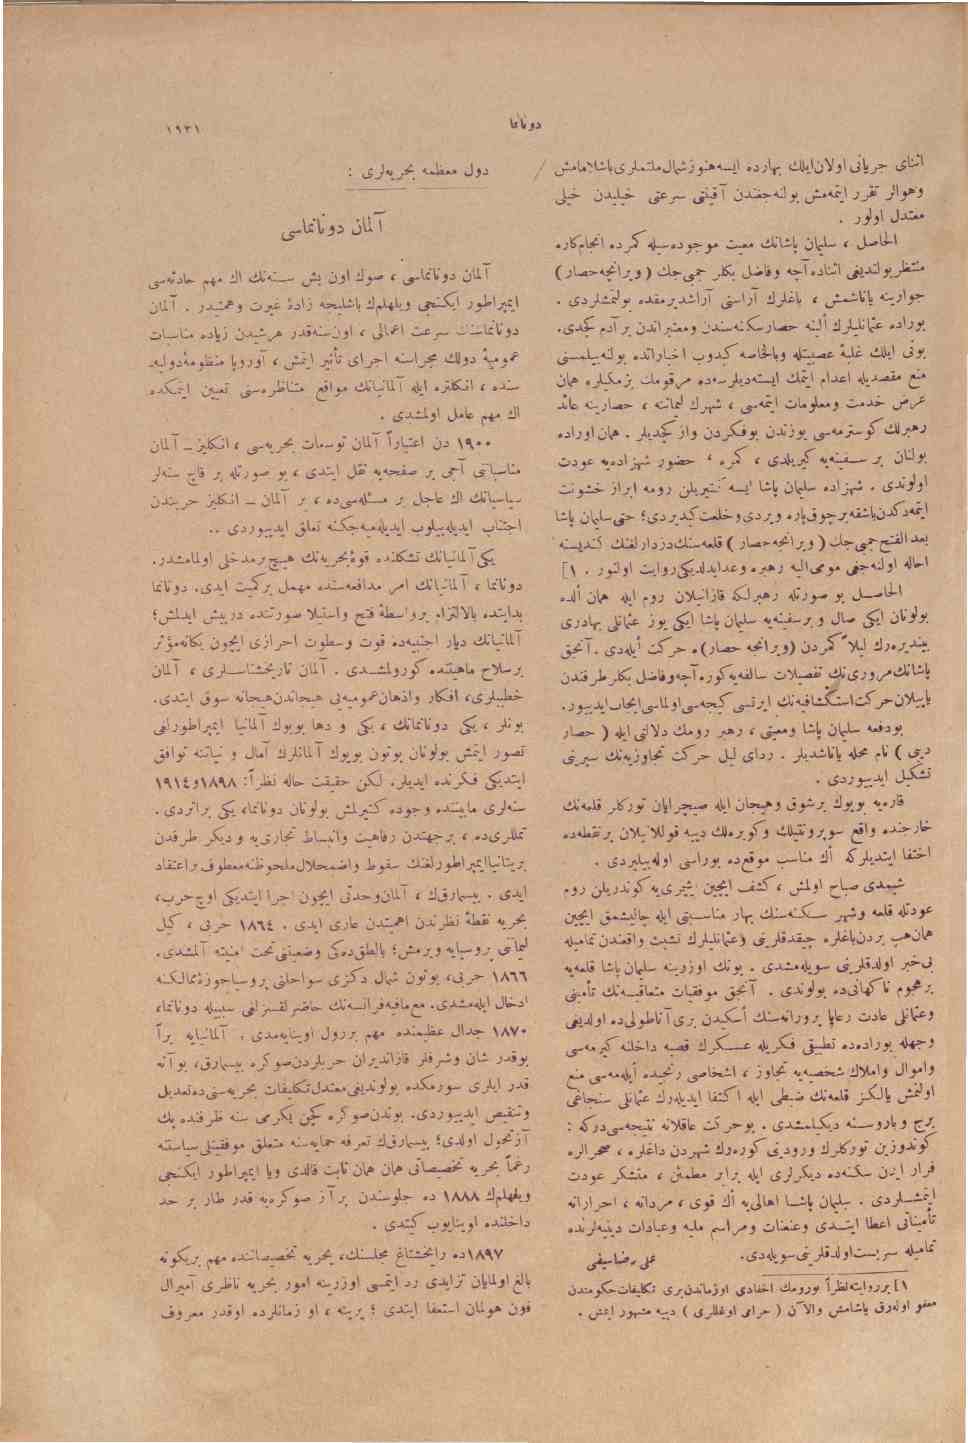 دونانما
١٩٣١
اثنای جریانی اولان ایلك بهارده ایسه هنوز شمال ملتملری باشلامامش
وهوالر تقرر ایتمه‌مش بولنه‌جغندن آقینتی سرعتی خیلیدن خیلی
معتدل اولور .
الحاصل ، سلیمان پاشانك معیت موجوده‌سیله کمرده انجام کاره
منتظر بولندیغی اثناده آچه وفاضل بکلر حمی جك ( ویرانجه حصار )
جوارینه یاناشمش ، باغلرك آراسنی آراشدیرمقده بولنمشلردی .
بوراده عثمانلیلرك ألینه حصار سکنه‌سندن ومعتبراندن بر آدم کچدی.
بونی ایلك غلبهٔ عصبیتله وبالخاصه کیدوب اخبارانده بولنه‌بیلمسنی
منع مقصدیله اعدام ایتمك ایسته‌دیلرسه‌ده مرقومك بزمکیلره همان
عرض خدمت ومعلومات ایتمه‌سی ، شهرك لیماننه ، حصارینه عائد
رهبرلك کوسترمه‌سی یوزندن بوفکردن وازکچدیلر . همان اوراده
بولنان بر سفینه‌یه کیریلدی ، کمره ، حضور شهزاده‌یه عودت
اولوندی . شهزاده سلیمان پاشا ایسه کتیریلن رومه ابراز خشونت
ایتمه‌دکدن باشقه بر چوق پاره ویردی وخلعت کیدیردی؛ حتی سلیمان پاشا
بعدالفتح حمی جك ( ویرانجه حصار ) قلعه‌سنك دزدارلغنك کندیسنه
احاله اولنه‌جغی مومی‌الیه رهبره وعد ایدلدیکی روایت اولنور . [١
الحاصل بو صورتله رهبرلکه قازانیلان روم ایله همان ألده
بولونان ایکی صال و بر سفینه‌یه سلیمان پاشا ایکی یوز عثمانلی بهادری
بیندیره‌رك لیلاً کمردن (ویرانجه حصار) ه حرکت أیله‌دی . آنجق
پاشانك مروری‌نك تفصیلات سالفه‌یه کوره آچه وفاضل بکلر طرفندن
یاپیلان حرکت استکشافیه‌نك ایرتسی کیجه‌سی اولماسی ایجاب ایدییور.
بودفعه سلیمان پاشا ومعیتی ، رهبر رومك دلالتی ایله ( حصار
دیبی ) نام محله یاناشدیلر . ردای لیل حرکت تجاوزیه‌نك سپرینی
تشکیل ایدییوردی .
قاره‌یه بویوك بر شوق وهیجان ایله صیچرایان تورکلر قلعه‌نك
خارجنده واقع سوپرونتیلك وکوبره‌لك دیبه قوللانیلان بر نقطه‌ده
اختفا ایتدیلرکه أك مناسب موقع‌ده بوراسی اوله‌بیلیردی .
شیمدی صباح اولمش ، کشف ایچین ایچری‌یه کوندریلن روم
عودتله قلعه وشهر سکنه‌سنك بهار مناسبتی ایله چالیشمق ایچین
همان هپ بردن باغلره چیقدقلرینی و عثمانلیلرك تشبث واقعندن تمامیله
بی‌خبر اولدقلرینی سویله‌مشدی . بونك اوزرینه سلیمان پاشا قلعه‌یه
بر هجوم ناکهانی‌ده بولوندی . آنجق موفقیات متعاقبه‌سنك تأمینی
وعثمانلی عادت رعایا پرورانه‌سنك أسکیدن بری آناطولی‌ده اولدیغی
وجهله بوراده‌ده تطبیقی فکریله عسکرك قصبه داخلنه کیرمه‌سی
واموال واملاك شخصیه‌یه تجاوز ، اشخاصی رنجیده أیله‌مه‌سی منع
اولنمش یالکز قلعه‌نك ضبطی ایله اکتفا ایدیله‌رك عثمانلی سنجاغی
برج وباروسنه دیکیلمشدی . بوحرکت عاقلانه نتیجه‌سی‌درکه :
کوندوزین تورکلرك ورودینی کوره‌رك شهردن داغلره ، صحرالره
فرار ایدن سکنه‌ده دیکرلری ایله برابر مطمئن ، متشکر عودت
ایتمشلردی . سلیمان پاشا اهالی‌یه أك قوی ، مردانه ، احرارانه
تأمیناتی اعطا ایتدی وعنعنات ومراسم ملیه وعبادات دینیه‌لرنده
تمامیله سربست اولدقلرینی سویله‌دی.
علی رضا سیفی
١] بر روایته نظراً بورومك احفادی اوزماندن‌بری تکلیفات حکومتدن
معفو اوله‌رق یاشامش والآن ( حرامی اوغللری ) دییه مشهور ایمش .
دول معظمه بحریه‌لری :
آلمان دونانماسی
آلمان دونانماسی ، صوك اون بش سنه‌نك اك مهم حادثه‌سی
ایمپراطور ایکنجی ویلهلمك باشلیجه زادهٔ غیرت وهمتیدر . آلمان
دونانماسنك سرعت اعمالی ، اون سنه‌قدر هرشیدن زیاده مناسبات
عمومیهٔ دولك مجراسنه اجرای تأثیر ایتمش ، آوروپا منظومهٔ دولیه-
سنده ، انکلتره ایله آلمانیانك مواقع متناظره‌سنی تعیین ایتمکده
اك مهم عامل اولمشدی .
١٩٠٠ دن اعتباراً آلمان توسعات بحریه‌سی ، انکلیز ـ آلمان
مناسباتنی آجی بر صفحه‌یه نقل ایتدی ، بو صورتله بر قاچ سنه‌لر
سیاسیاتك اك عاجل بر مسئله‌سی‌ده ، بر آلمان ـ انکلیز حربندن
اجتناب ایدیله‌بیلوب ایدیله‌میه‌جکنه تعلق ایدییوردی ..
یکی آلمانیانك تشکلنده قوهٔ بحریه‌نك هیچ بر مدخلی اولمامشدر.
دونانما ، آلمانیانك امر مدافعه‌سنده مهمل بر کمیت ایدی. دونانما
بدایتده بالالتزام بر واسطهٔ فتح واستیلا صورتنده درپیش ایدلمش؛
آلمانیانك دیار اجنبیه‌ده قوت وسطوت احرازی ایچون یکانه مؤثر
بر سلاح ماهیتنده کورولمشدی . آلمان تاریخشناسلری ، آلمان
خطیبلری، افکار واذهان عمومیه‌یی هیجاندن هیجانه سوق ایتدی.
بونلر ، یکی دونانمانك ، یکی و دها بویوك آلمانیا ایمپراطورلغی
تصور ایتمش بولونان بوتون بویوك آلمانلرك آمال و نیاتنه توافق
ایتدیکی فکرنده ایدیلر. لکن حقیقت حاله نظراً: ١٨٩٨ و ١٩١٤
سنه‌لری مابیننده وجوده کتیرلمش بولونان دونانما، یکی براثردی.
تمللری‌ده ، بر جهتدن رفاهیت وانبساط تجاری‌یه و دیکر طرفدن
بریتانیا ایمپراطورلغنك سقوط واضمحلال ملحوظنه معطوف بر اعتقاد
ایدی . بیسمارق‌ك ، آلمان وحدتی ایچون اجرا ایتدیکی اوچ حرب،
بحریه نقطهٔ نظرندن اهمیتدن عاری ایدی . ١٨٦٤ حربی ، کیل
لیمانی پروسیایه ویرمش؛ بالطق‌ده‌کی وضعیتنی تحت امنیته آلمشدی.
١٨٦٦ حربی، بوتون شمال دکزی سواحلنی پروسیا حوزهٔ ممالکنه
ادخال ایله‌مشدی. مع مافیه فرانسه‌نك حاضرلقسزلغی سببیله دونانما،
١٨٧٠ جدال عظیمنده مهم بر رول اوینایه‌مدی . آلمانیایه براً
بوقدر شان وشرفلر قازاندیران حربلردن صوکره بیسمارق، بوآنه
قدر ایلری سورمکده بولوندیغی معتدل تکلیفات بحریه‌سنی‌ده تعدیل
وتنقیص ایدییوردی. بوندن صوکره کچن یکرمی سنه ظرفنده پك
آز تحول اولدی؛ بیسمارق‌ك تعرفه حمایه‌سنه متعلق موفقیتلی سیاسته
رغماً بحریه تخصیصاتی همان همان ثابت قالدی ویا ایمپراطور ایکنجی
ویلهلمك ١٨٨٨ ده جلوسندن بر آز صوکره‌یه قدر طار بر حد
داخلنده اوینایوب کیتدی .
١٨٩٧ده رایخشتاغ مجلسنك، بحریه تخصیصاتنده مهم بر یکونه
بالغ اولمایان تزایدی رد ایتمسی اوزرینه امور بحریه ناظری آمیرال
فون هولمان استعفا ایتدی ؛ یرینه ، او زمانلرده اوقدر معروف